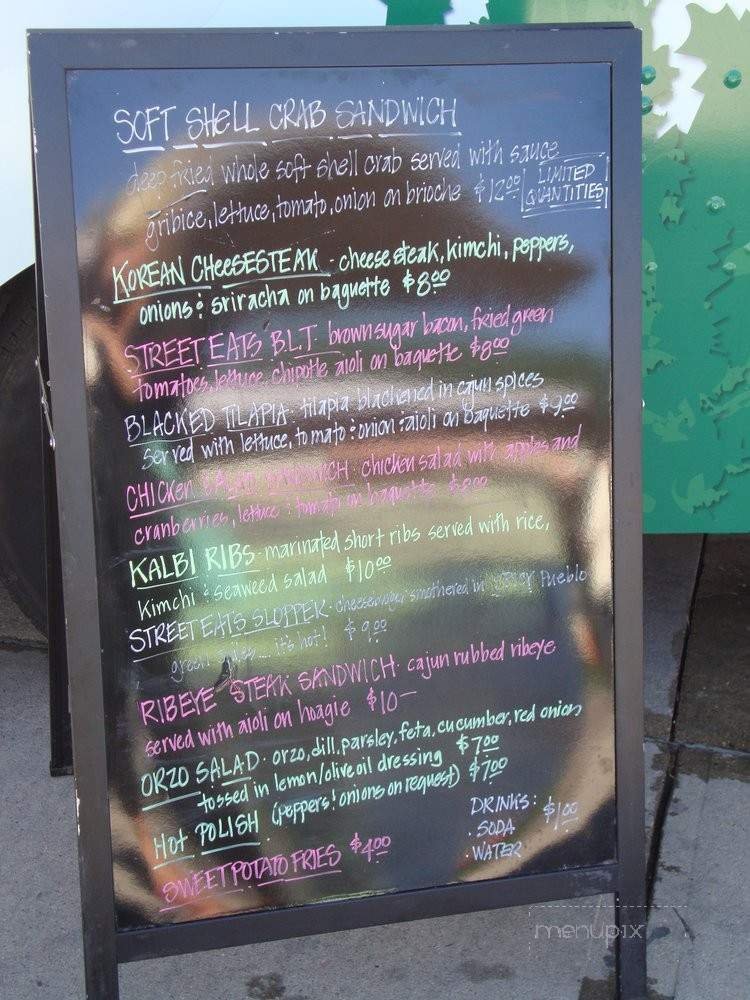 SOFT SHELL CRAB SANDWICH
deep fried whole soft shell crab served with sauce
gribice, lettuce, tomato, onion on brioche $12.00
LIMITED
QUANTITIES
KOREAN CHEESESTEAK - cheesesteak, kimchi, peppers,
onions & sriracha on baguette $8.00
STREET EATS B.L.T. brown sugar bacon, fried green
tomatoes, lettuce, chipotle aioli on baguette $8.00
BLACKED TILAPIA - tilapia blackened in cajun spices
served with lettuce, tomato & onion & aioli on baguette $9.00
CHICKEN SALAD SANDWICH - chicken salad with apples and
cranberries, lettuce & tomato on baguette $8.00
KALBI RIBS - marinated short ribs served with rice,
Kimchi & seaweed salad $10.00
STREET EATS SLOPPER - cheeseburger smothered in Pueblo
green ... it's hot! $9.00
RIBEYE STEAK SANDWICH - cajun rubbed ribeye
served with aioli on hoagie $10—
ORZO SALAD - orzo, dill, parsley, feta, cucumber, red onion
tossed in lemon/olive oil dressing $7.00
HOT POLISH (peppers & onions on request) $7.00
SWEET POTATO FRIES $4.00
DRINKS: $1.00
· SODA
· WATER
menupix